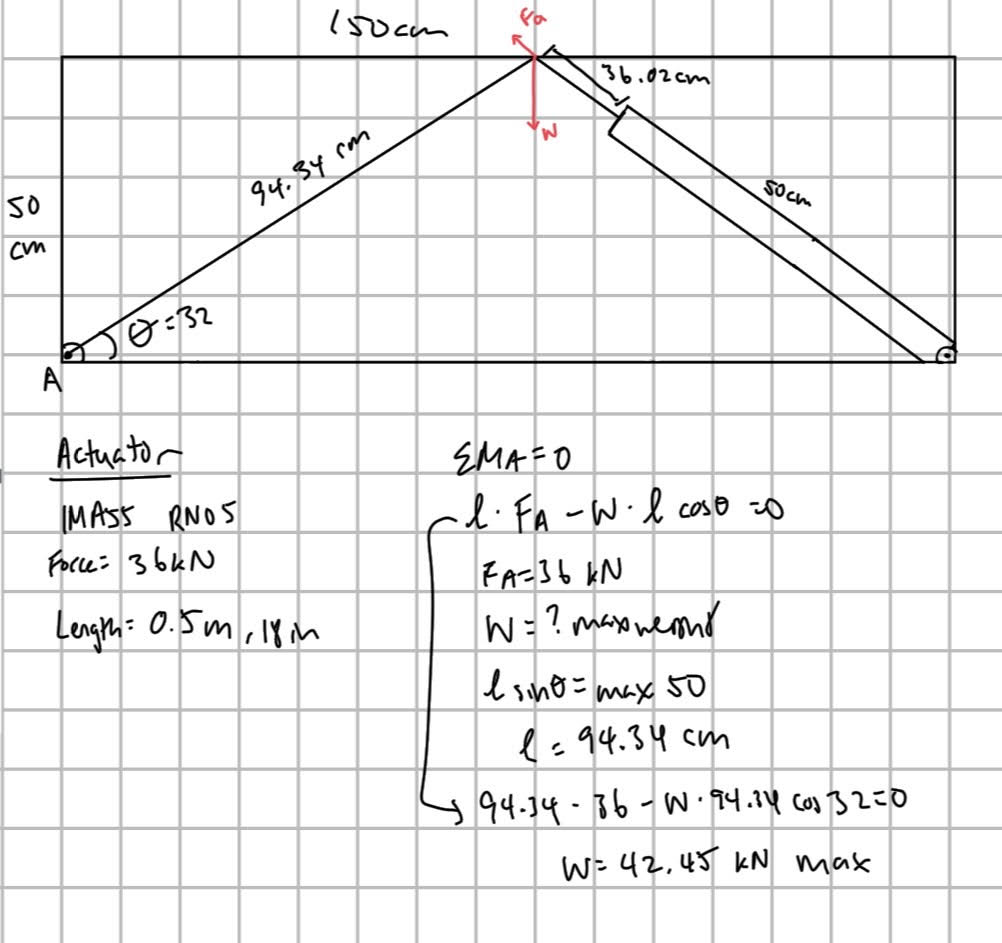 150cm
Fa
36.02cm
W
94.34 cm
50cm
50
cm
θ=32
A
Actuator
IMA55 RN05
Force= 36kN
Length= 0.5m, 18in
ΣMA=0
l · FA - W · l cosθ =0
FA=36 kN
W = ? max
l sinθ = max 50
l = 94.34 cm
94.34 · 36 - W · 94.34 cos 32=0
W= 42.45 kN max